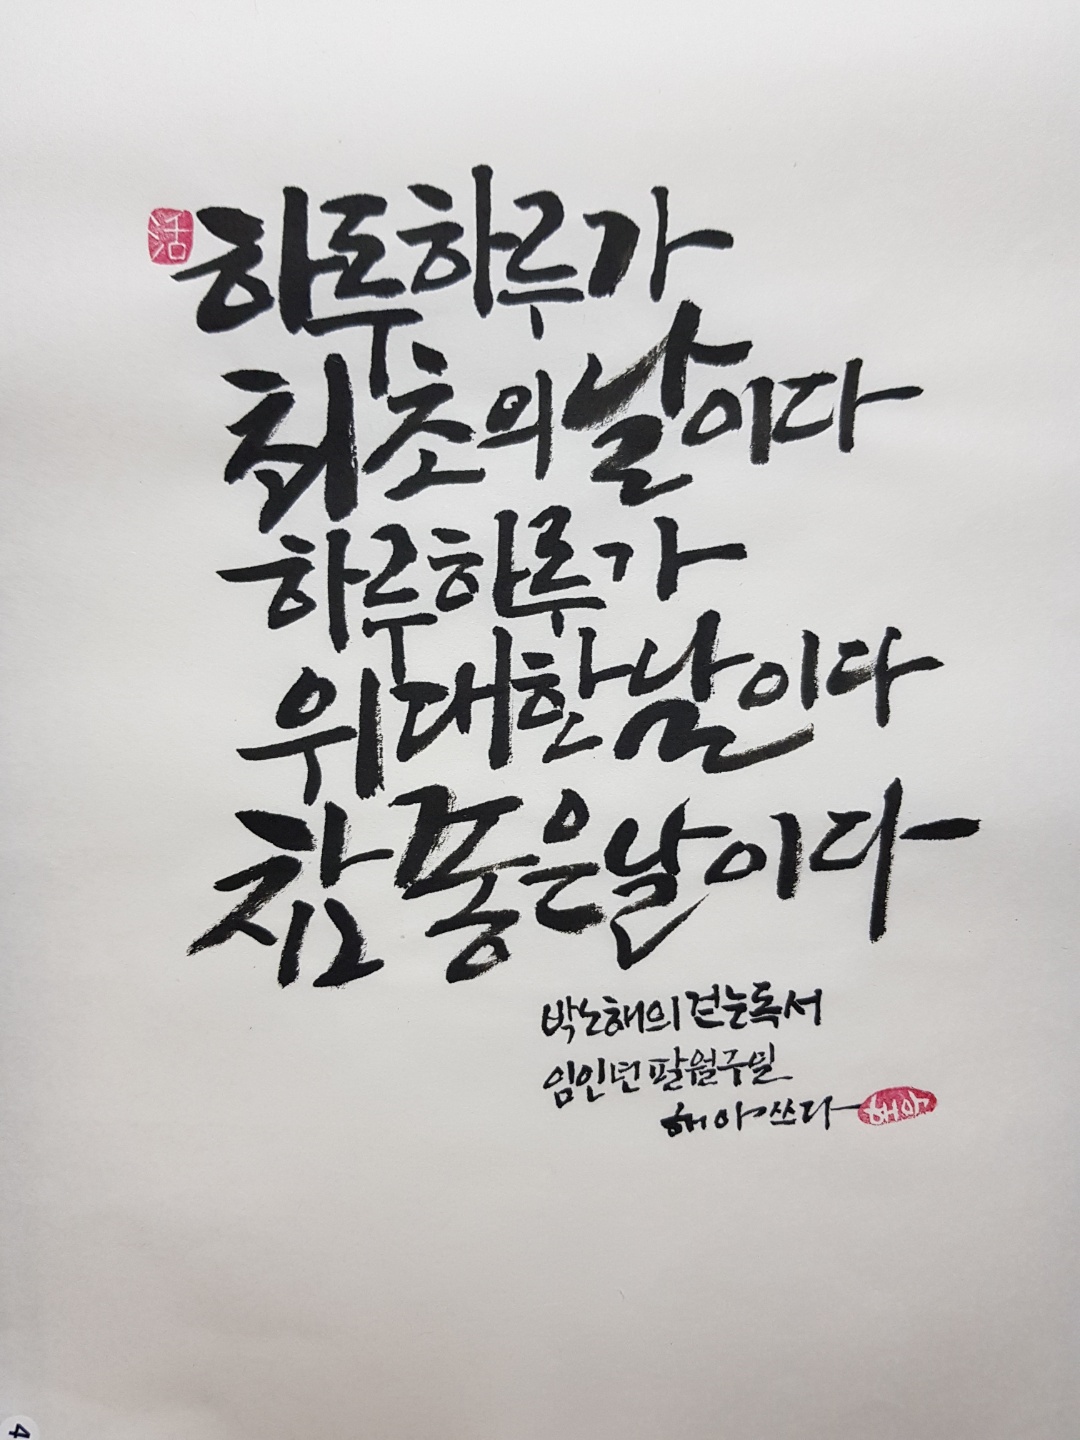 活
하루하루가
최초의 날이다
하루하루가
위대한 날이다
참 좋은 날이다
박노해의 걷는독서
임인년 팔월주일
해야 쓰다
해야
4